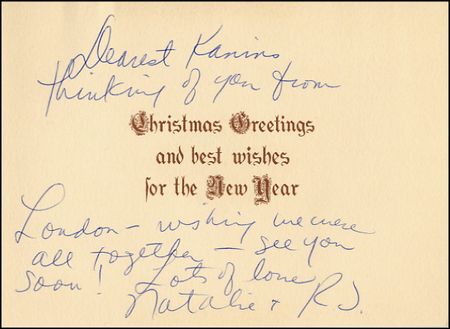 Dearest Kanins
thinking of you from
Christmas Greetings
and best wishes
for the New Year
London – wishing we were
all together – see you
soon! Lots of love
Natalie + R.J.